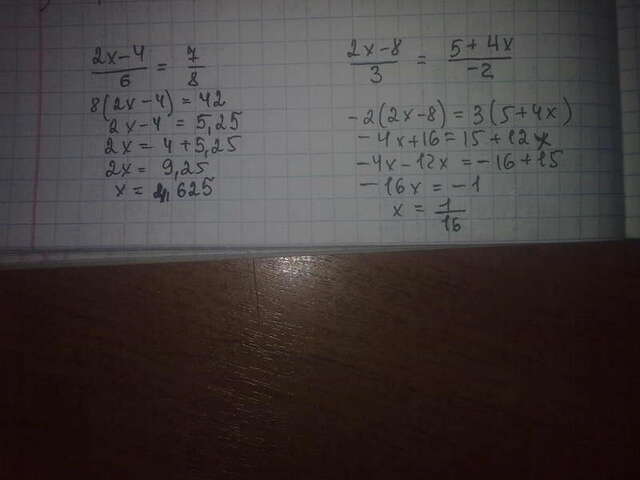 (2x-4)/6 = 7/8
8(2x-4) = 42
2x-4 = 5,25
2x = 4+5,25
2x = 9,25
x = 4,625
(2x-8)/3 = (5+4x)/-2
-2(2x-8) = 3(5+4x)
-4x+16 = 15+12x
-4x-12x = -16+15
-16x = -1
x = 1/16